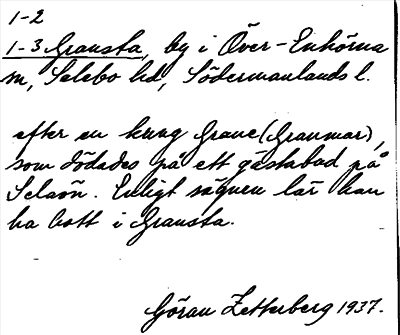 1-2
1-3 Gransta, by i Över-Enhörna
sn, Selebo hd, Södermanlands l.
efter en kung Grane (Granmar),
som dödades på ett gästabad på
Selaön. Enligt sägnen lär han
ha bott i Gransta.
Göran Zetterberg 1937.